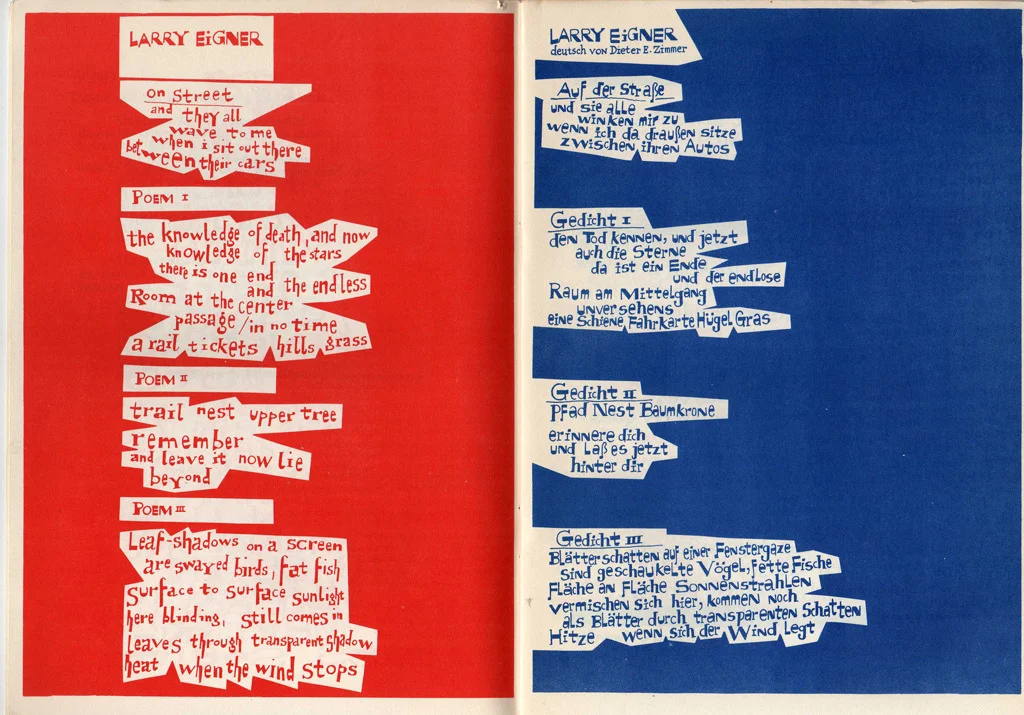 LARRY EiGNER
on Street
and they all
wave to me
when i sit out there
between their cars
POEM I
the knowledge of death, and now
knowledge of the stars
there is one end
and the endless
Room at the center
passage / in no time
a rail tickets hills grass
POEM II
trail nest upper tree
remember
and leave it now lie
beyond
POEM III
Leaf-shadows on a screen
are swayed birds, fat fish
surface to surface sunlight
here blinding, still comes in
leaves through transparent shadow
heat when the wind stops
LARRY EiGNER
deutsch von Dieter E. Zimmer
Auf der Straße
und sie alle
winken mir zu
wenn ich da draußen sitze
zwischen ihren Autos
Gedicht I
den Tod kennen, und jetzt
auch die Sterne
da ist ein Ende
und der endlose
Raum am Mittelgang
unversehens
eine Schiene Fahrkarte Hügel Gras
Gedicht II
Pfad Nest Baumkrone
erinnere dich
und Laß es jetzt
hinter dir
Gedicht III
Blätterschatten auf einer Fenstergaze
sind geschaukelte Vögel, fette Fische
Fläche an Fläche Sonnenstrahlen
vermischen sich hier, kommen noch
als Blätter durch transparenten Schatten
Hitze wenn sich der Wind legt